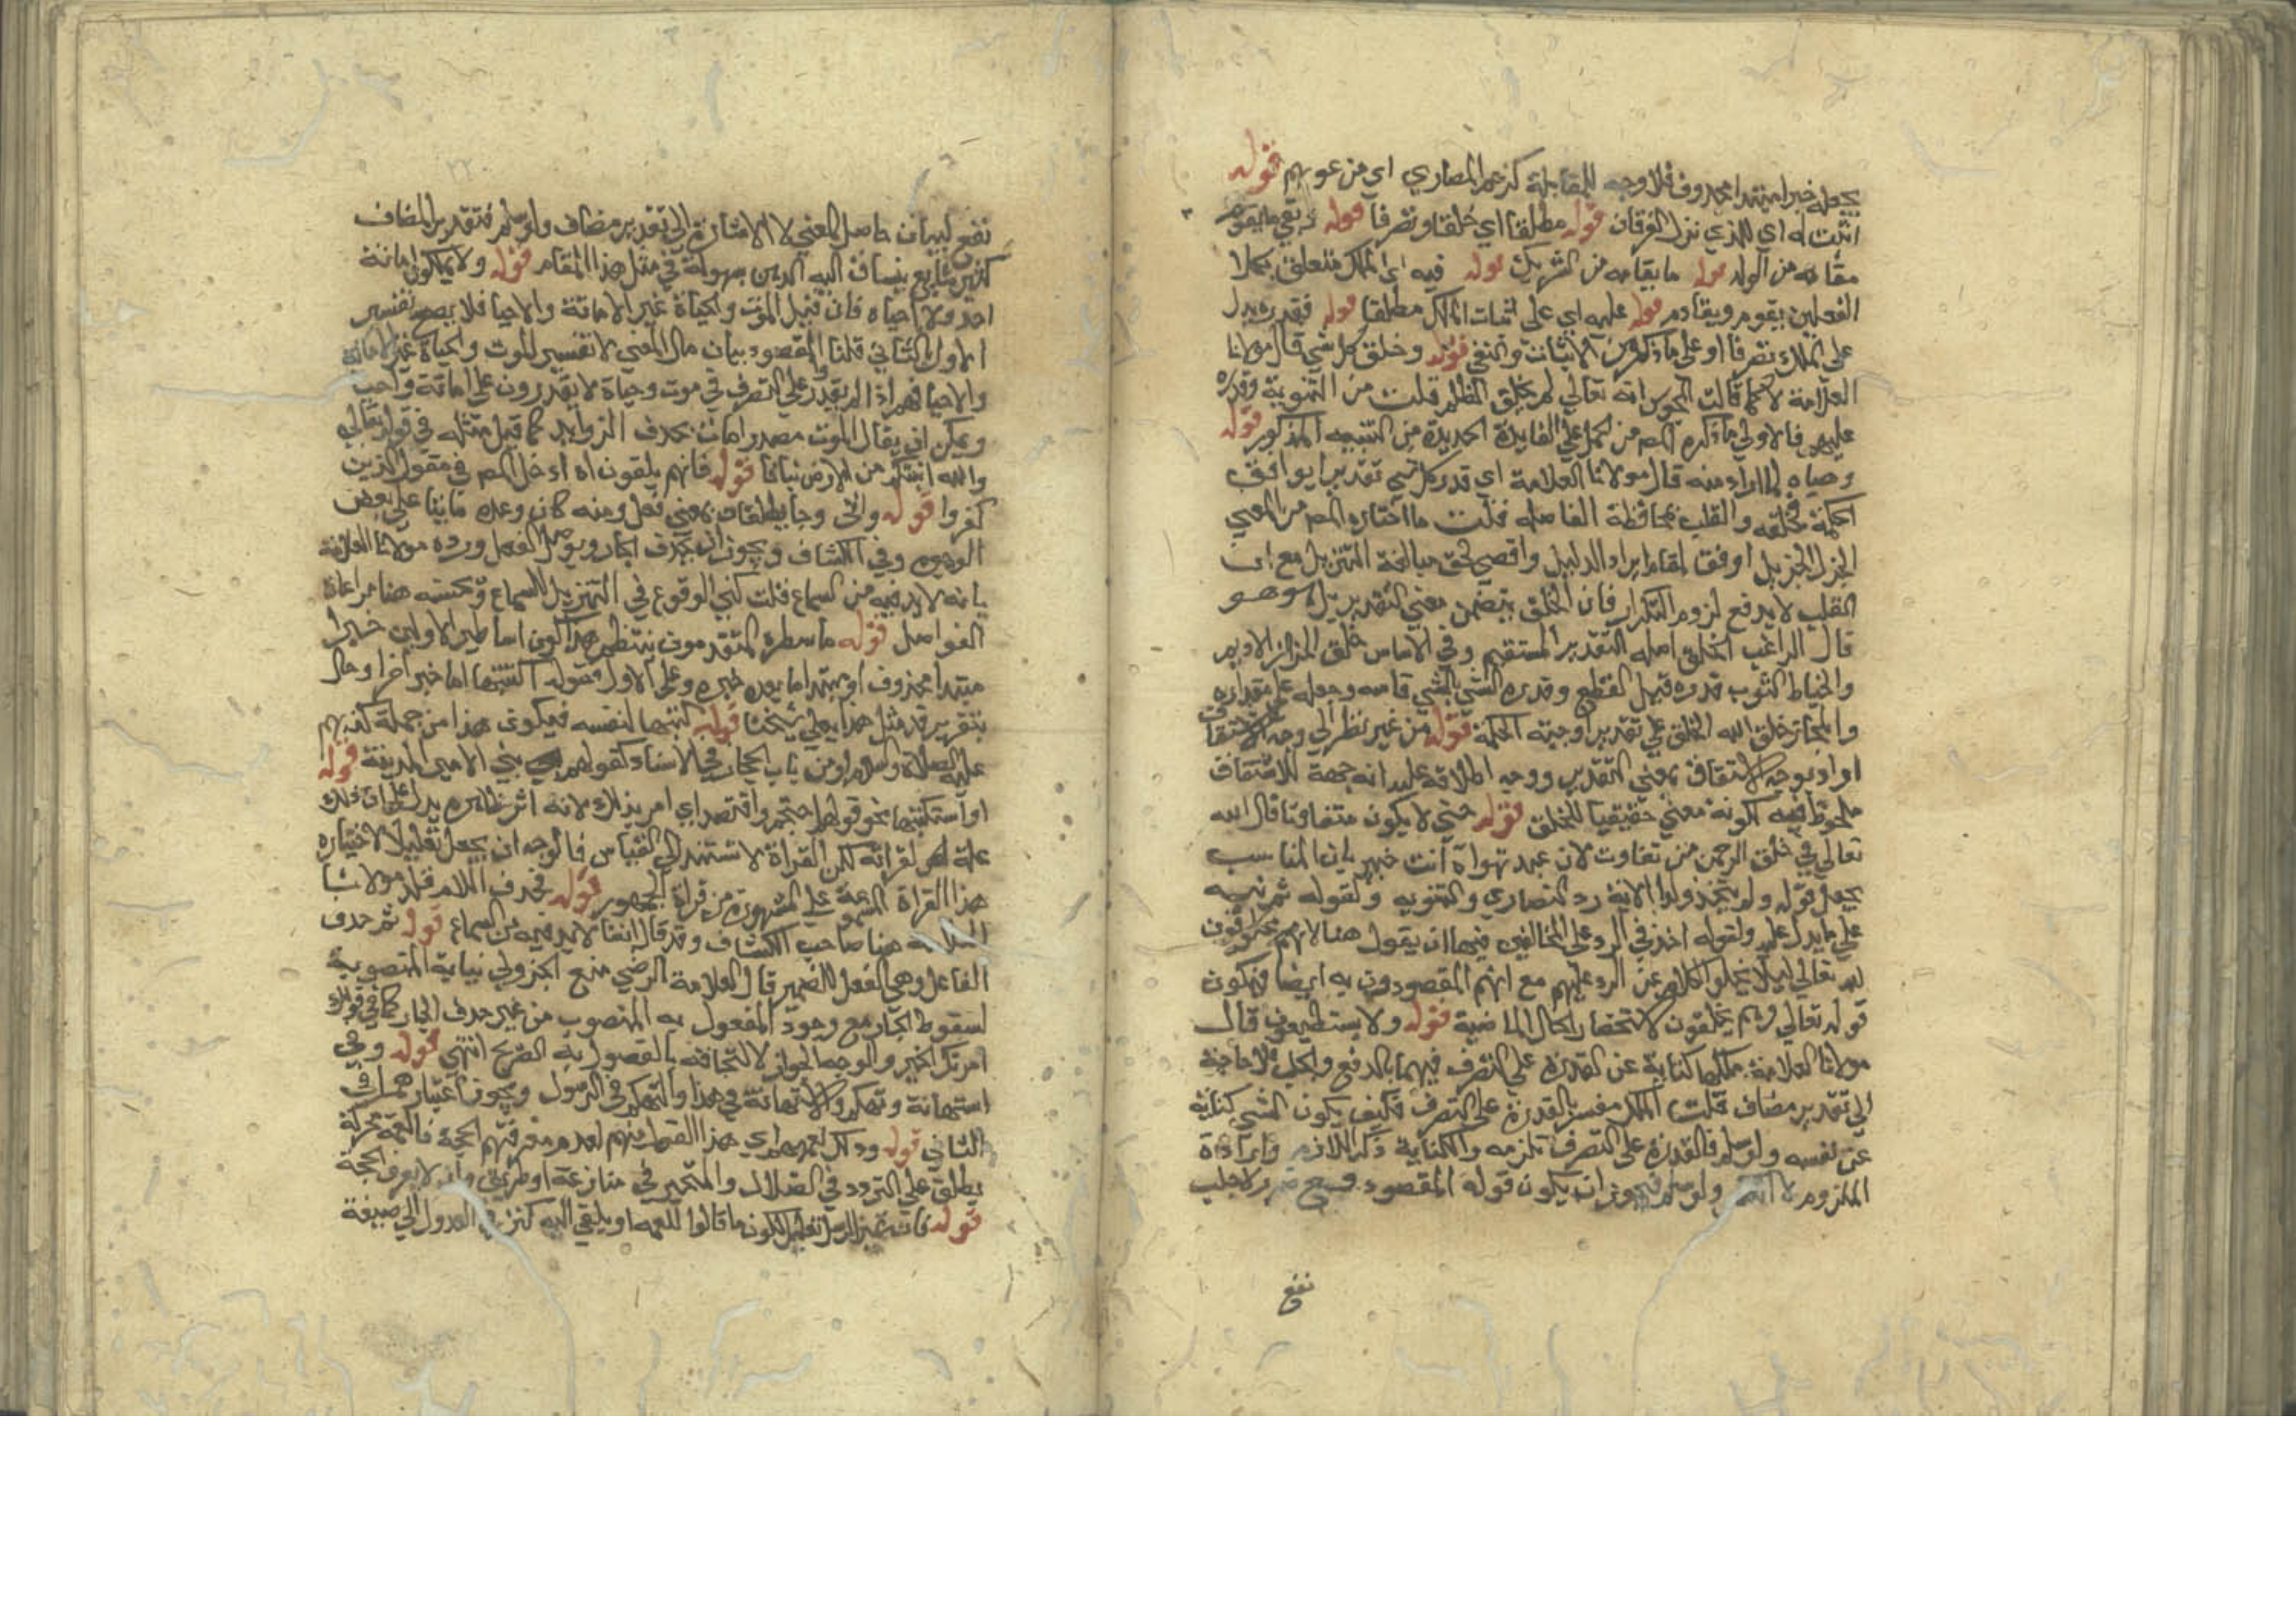 يجعله خبرا مبتدا محذوف فلا وجه للمقابلة كزعم النصاري اي من عمومهم قوله
اثبت له اي للذي نزل الفرقان قوله مطلقا اي خلقا وتصرفا قوله نفي ما يقوم
مقامه من الولد قوله ما يقامه من الشريك قوله فيه اي الملك متعلق بكلا
الفعلين يقوم ويقادم قوله عليه اي على اثبات الملك مطلقا قوله فقدره يدل
على الملك تصرفا او على ما ذكر من الاثبات والنفي قوله وخلق كل شي قال مولانا
العلامة لا كما قالت المجوس انه تعالي لم يخلق الظلم قلت من الثنوية وقدره
عليهم فالاولي ما ذكره المص من الحمل علي الفايدة الجديدة من التنبيه المذكور قوله
وهياه لما اراد منه قال مولانا العلامة اي قدر كل شي تقديرا يوافق
الحكمة فخلقه والقلب بمحافظة الفاصله قلت ما اختاره المص من المعني
الجزل الجزيل اوفق لمقام ايراد الدليل واقصي لحق مبالغة التنزيل مع ان
القلب لا يدفع لزوم التكرار فان الخلق يتضمن معني التقدير بل هو هو
قال الراغب الخلق اصله التقدير المستقيم وفي الاساس خلق الخراز الاديم
والخياط الثوب قدره قبل القطع وقدر الشي بالشي قاسه وجعله علي مقداره
والمجاز خلق الله الخلق علي تقدير اوجبته الحكمة قوله من غير نظر الي وجه الاشتقاق
اراد بوجه الاشتقاق معني التقدير ووجه اطلاقه عليه انه جهة للاشتقاق
ملحوظ فيه لكونه معني حقيقيا للخلق قوله حتي لا يكون متفاوتا قال الله
تعالي في خلق الرحمن من تفاوت لان عبد تهواه انت خبير بان المناسب
يجعل قوله ولم يتخذ ولدا الاية رد النصاري والثنويه ولقوله ثم نبه
علي ما يدل عليه ولقوله اخذ في الرد علي المخالفين فيهما ان يقول هنا لانهم مخلوقون
لله تعالي ليلا يخلوا الكلام عن الرد عليهم مع انهم المقصودون به ايضا فيكون
قوله تعالي وهم يخلقون لاستحضار الحال الماضية قوله ولا يستطيعون قال
مولانا العلامة ملكها كناية عن القدرة علي التصرف فيهما بالدفع والجلب فلا حاجة
الي تقدير مضاف قلت الملك مفسر بالقدرة علي التصرف فكيف يكون الشي كناية
عن نفسه ولو سلم فالقدرة علي التصرف تلزمه والكناية ذكر اللازم وارادة
الملزوم لا ولو سلم فيجوز ان يكون قوله المقصود دفع ضر ولا جلب
نفع
نفع لبيان حاصل المعني لا الاشارة الي تقدير مضاف ولو سلم فتقدير المضاف
كثير شايع ينساق اليه الذهن بسهولة في مثل هذا المقام قوله ولا يملكون اماتة
احد ولا احياه فان قيل الموت والحياة غير الاماتة والاحيا فلا يصح تفسير
الاول بالثاني قلنا المقصود بيان مال المعني لا تفسير للموت والحياة غير الاماتة
والاحيا فهم اذا لم يقدر علي التصرف في موت وحياة لا يقدرون علي اماتة واحيا
ويمكن ان يقال الموت مصدر امات بحذف الزوايد كما قيل مثله في قوله تعالي
والله انبتكم من الارض نباتا قوله فانهم يلقون اه ادخل المص في مقول الذين
كفروا قوله واتي وجا يطلقان بمعني فعل ومنه كان وعده ماتيا علي بعض
الوجوه وفي الكشاف ويجوز ان يحذف الجار ويوصل الفعل ورده مولانا العلامة
بانه لابد فيه من السماع قلت كفي الوقوع في التنزيل للسماع وحسنه هنا مراعاة
الفواصل قوله ما سطره المتقدمون ينتظم هذا كون اساطير الاولين خبرا
مبتدا محذوف او مبتدا ما بعده خبره وعلي الاول قوله اكتتبها اما خبر اخر او حال
بتقرير قد مثل هذا بعلي شيخا قوله كتبها لنفسه فيكون هذا من جملة كذبهم
عليه الصلاة والسلام او من باب المجاز في الاسناد كقولهم بني الامير المدينة قوله
او استكتبها نحو قولهم احتجم وافتصد اي امر بذلك لانه اثر ظاهره يدل علي ان ذلك
علة لقراته لكن القراة لا تستند الي القياس فالوجه ان يجعل تعليلا لاختياره
هذا القراة علي المشهورة من قراة الجمهور قوله فحذف اللام قلد مولانا
العلامة هنا صاحب الكشاف وقد قال انفا لابد فيه من السماع قوله ثم حذف
الفاعل وهي الفعل للضمير قال العلامة الرضي منع الجزولي نيابة المنصوب
لسقوط الجار مع وجود المفعول به المنصوب من غير حذف الجار كما في قولك
امرتك الخير والوجه الجواز لالتحاقه بالمفعول به الصريح انتهي قوله وفي
استهانة وتهكم والاستهانة في هذا والتهكم في الرسول ويجوز اعتبارهما في
الثاني قوله وذلك لعمههم اي هذا القول منهم لعدم معرفتهم الحجة فالعمه محركة
يطلق علي التردد في الضلال والتحير في منازعة او طريق وان لا يعرف الحجة
قوله فانه يميز الرسل تعليل لكون ما قالوا للعمه او يلقي اليه كنز في العدول الي صيغة